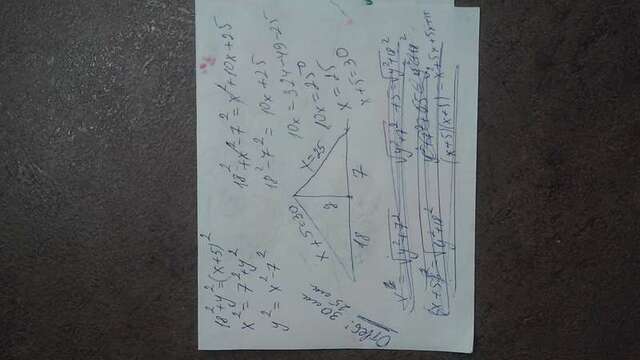 18²+y²=(x+5)²
x²=7²+y²
y²=x²-7²
18²+x²-7²=x²+10x+25
18²-7²=10x+25
10x=324-49-25
10x=250
x=25
x+5=30
x+5=30
x=25
y
18
7
30 см
25 см
√y²+7²
√y²+7² +5=√y²+18²
(x+5)²=√y²+18²
(x+5)(x+5)=x²+5x+5x+